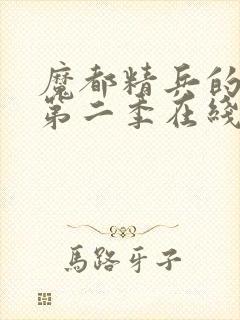 魔都精兵的
第二季在綫
馬路牙子